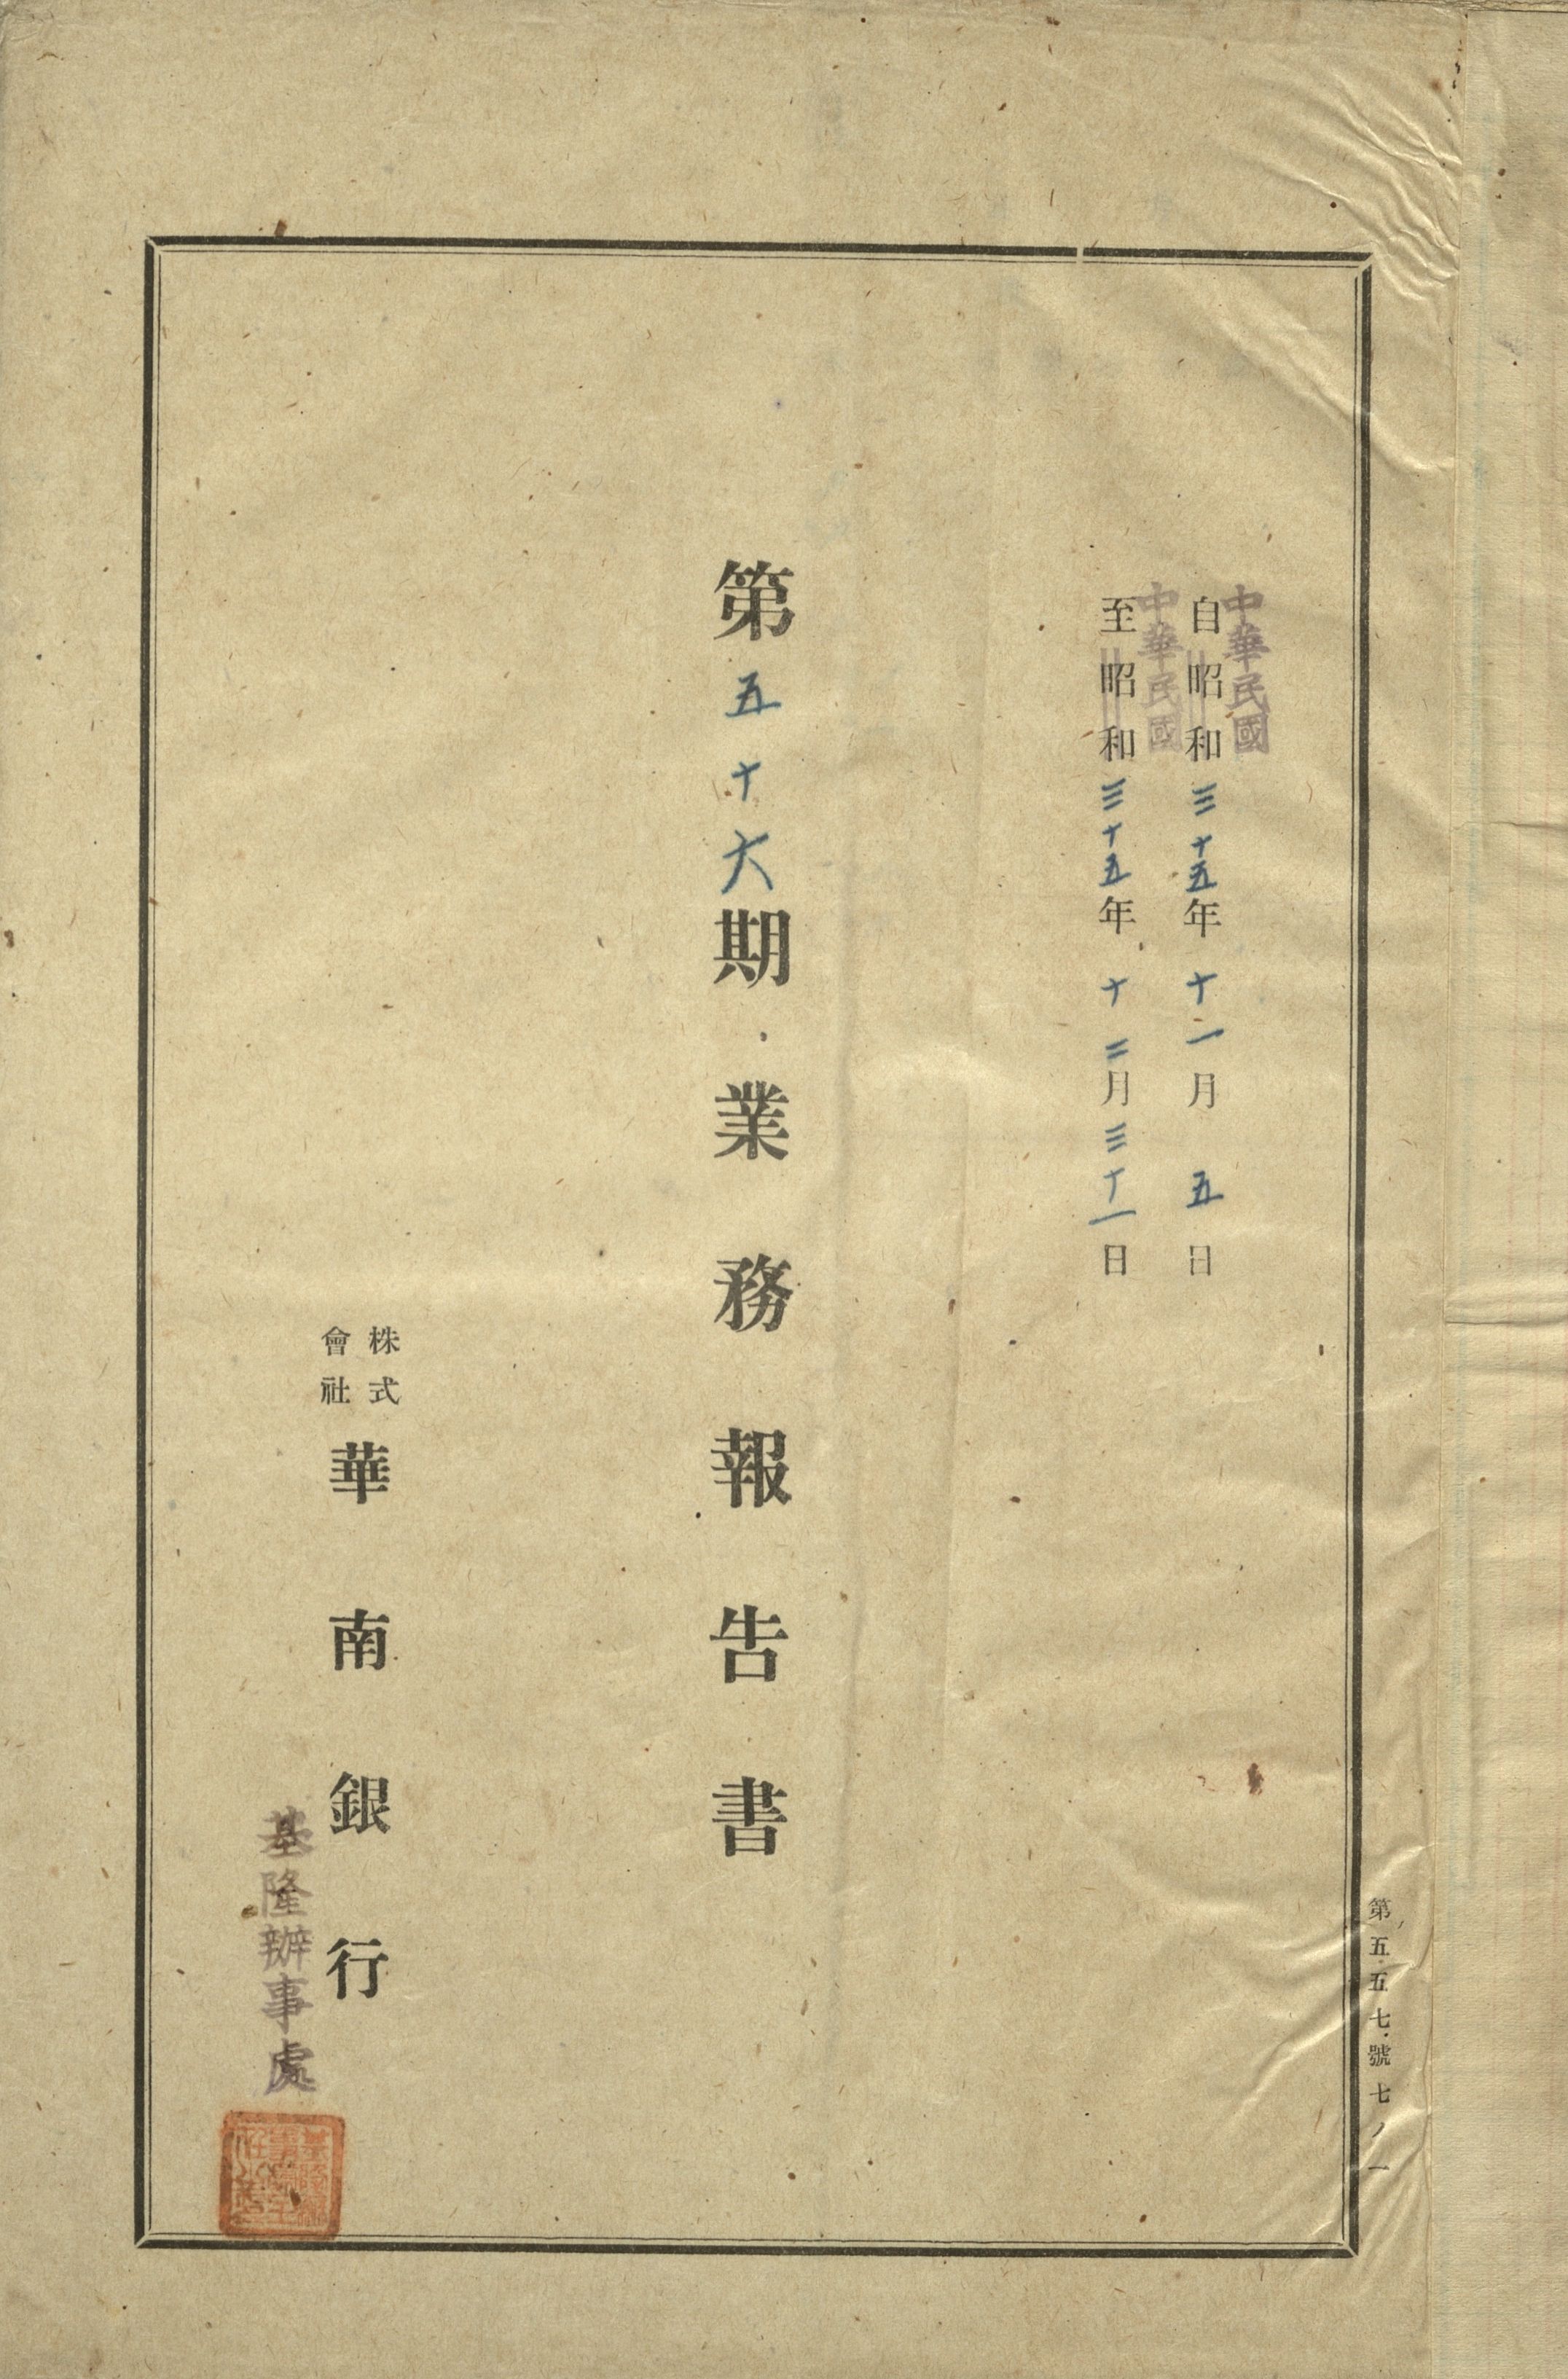 中華民國
自昭和三十五年十一月五日
中華民國
至昭和三十五年十二月三十一日
第五十六期業務報告書
株式
會社
華南銀行
基隆辦事處
第五五七號七ノ一